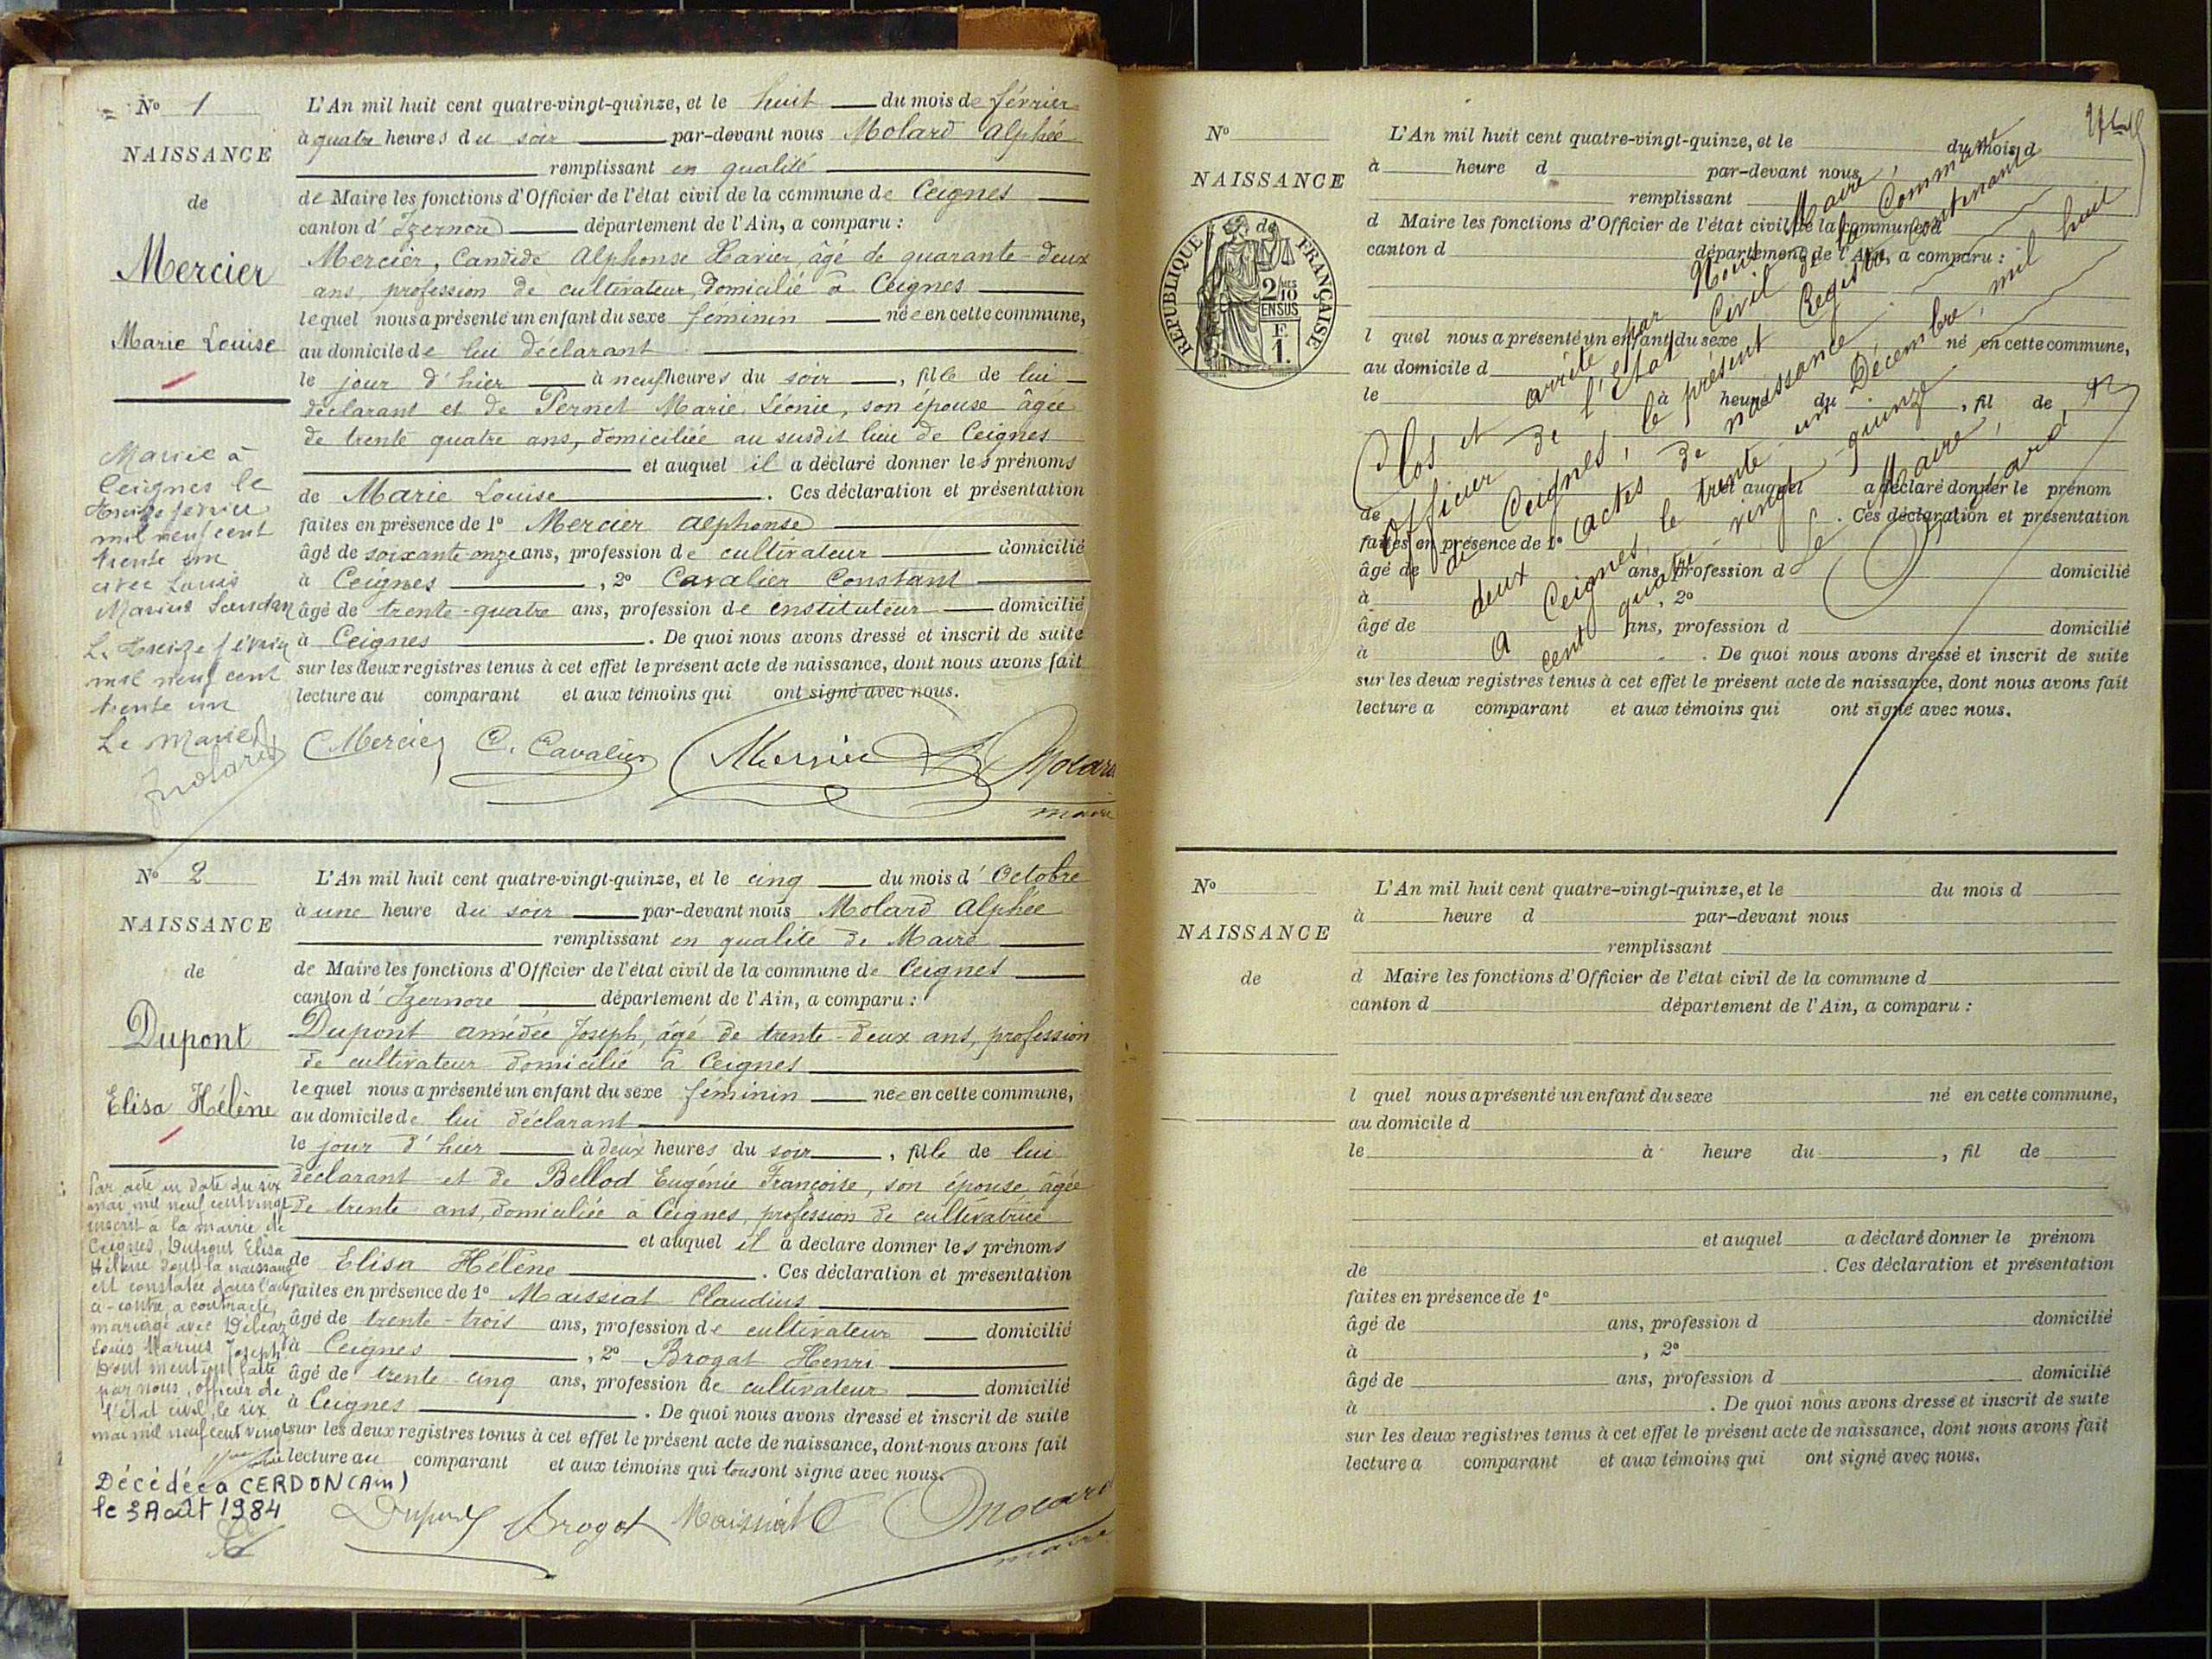 N° 1
NAISSANCE
de
Mercier
Marie Louise
Mariée à
Ceignes le
treize février
mil neuf cent
trente un
avec Louis
Marius
Le treize février
mil neuf cent
trente un
Le Maire
Molard
L'An mil huit cent quatre-vingt-quinze, et le huit du mois de février
à quatre heures du soir par-devant nous Molard Alphée
remplissant en qualité
de Maire les fonctions d'Officier de l'état civil de la commune de Ceignes
canton d'Izernore département de l'Ain, a comparu :
Mercier, Candide Alphonse Xavier, âgé de quarante-deux
ans, profession de cultivateur, domicilié à Ceignes
lequel nous a présenté un enfant du sexe féminin née en cette commune,
au domicile de lui déclarant
le jour d'hier à neuf heures du soir, fille de lui
déclarant et de Pernet Marie Léonie, son épouse âgée
de trente quatre ans, domiciliée au susdit lieu de Ceignes
et auquel il a déclaré donner les prénoms
de Marie Louise. Ces déclaration et présentation
faites en présence de 1° Mercier Alphonse
âgé de soixante-onze ans, profession de cultivateur domicilié
à Ceignes, 2° Cavalier Constant
âgé de trente-quatre ans, profession de instituteur domicilié
à Ceignes. De quoi nous avons dressé et inscrit de suite
sur les deux registres tenus à cet effet le présent acte de naissance, dont nous avons fait
lecture au comparant et aux témoins qui ont signé avec nous.
Mercier C. Cavalier Mercier Molard
maire
N° 2
NAISSANCE
de
Dupont
Elisa Hélène
Par acte en date du six
mai mil neuf cent vingt
inscrit à la mairie de
Ceignes, Dupont Elisa
Hélène dont la naissance
est constatée dans l'acte
ci-contre a contracté
mariage avec
Louis Marius Joseph
Dont mention faite
par nous, officier de
l'état civil, le six
mai mil neuf cent vingt
Décédée à CERDON (Ain)
le 3 Août 1984
L'An mil huit cent quatre-vingt-quinze, et le cinq du mois d'Octobre
à une heure du soir par-devant nous Molard Alphée
remplissant en qualité de Maire
de Maire les fonctions d'Officier de l'état civil de la commune de Ceignes
canton d'Izernore département de l'Ain, a comparu :
Dupont Amédée Joseph, âgé de trente-deux ans, profession
de cultivateur domicilié à Ceignes
lequel nous a présenté un enfant du sexe féminin née en cette commune,
au domicile de lui déclarant
le jour d'hier à deux heures du soir, fille de lui
déclarant et de Bellod Eugénie Françoise, son épouse, âgée
de trente ans, domiciliée à Ceignes, profession de cultivatrice
et auquel il a déclaré donner les prénoms
de Elisa Hélène. Ces déclaration et présentation
faites en présence de 1° Maissiat Claudius
âgé de trente-trois ans, profession de cultivateur domicilié
à Ceignes, 2° Brogat Henri
âgé de trente-cinq ans, profession de cultivateur domicilié
à Ceignes. De quoi nous avons dressé et inscrit de suite
sur les deux registres tenus à cet effet le présent acte de naissance, dont nous avons fait
lecture au comparant et aux témoins qui tous ont signé avec nous.
Dupont Brogat Maissiat C Molard
maire
N°
NAISSANCE
REPUBLIQUE FRANÇAISE
2/10 EN SUS
F 1.
L'An mil huit cent quatre-vingt-quinze, et le du mois d
à heure d par-devant nous
remplissant
d Maire les fonctions d'Officier de l'état civil de la commune d
canton d département de l'Ain, a comparu :
l quel nous a présenté un enfant du sexe né en cette commune,
au domicile d
le à heure du, fil de
et auquel a déclaré donner le prénom
de. Ces déclaration et présentation
faites en présence de 1°
âgé de ans, profession d domicilié
à, 2°
âgé de ans, profession d domicilié
à. De quoi nous avons dressé et inscrit de suite
sur les deux registres tenus à cet effet le présent acte de naissance, dont nous avons fait
lecture a comparant et aux témoins qui ont signé avec nous.
Clos et arrêté par Nous Maire,
Officier de l'Etat Civil de la Commune
de Ceignes, le présent Registre contenant
deux actes de naissance.
A Ceignes, le trente-un Décembre, mil huit
cent quatre-vingt-quinze
Le Maire,
Molard
N°
NAISSANCE
de
L'An mil huit cent quatre-vingt-quinze, et le du mois d
à heure d par-devant nous
remplissant
d Maire les fonctions d'Officier de l'état civil de la commune d
canton d département de l'Ain, a comparu :
l quel nous a présenté un enfant du sexe né en cette commune,
au domicile d
le à heure du, fil de
et auquel a déclaré donner le prénom
de. Ces déclaration et présentation
faites en présence de 1°
âgé de ans, profession d domicilié
à, 2°
âgé de ans, profession d domicilié
à. De quoi nous avons dressé et inscrit de suite
sur les deux registres tenus à cet effet le présent acte de naissance, dont nous avons fait
lecture a comparant et aux témoins qui ont signé avec nous.